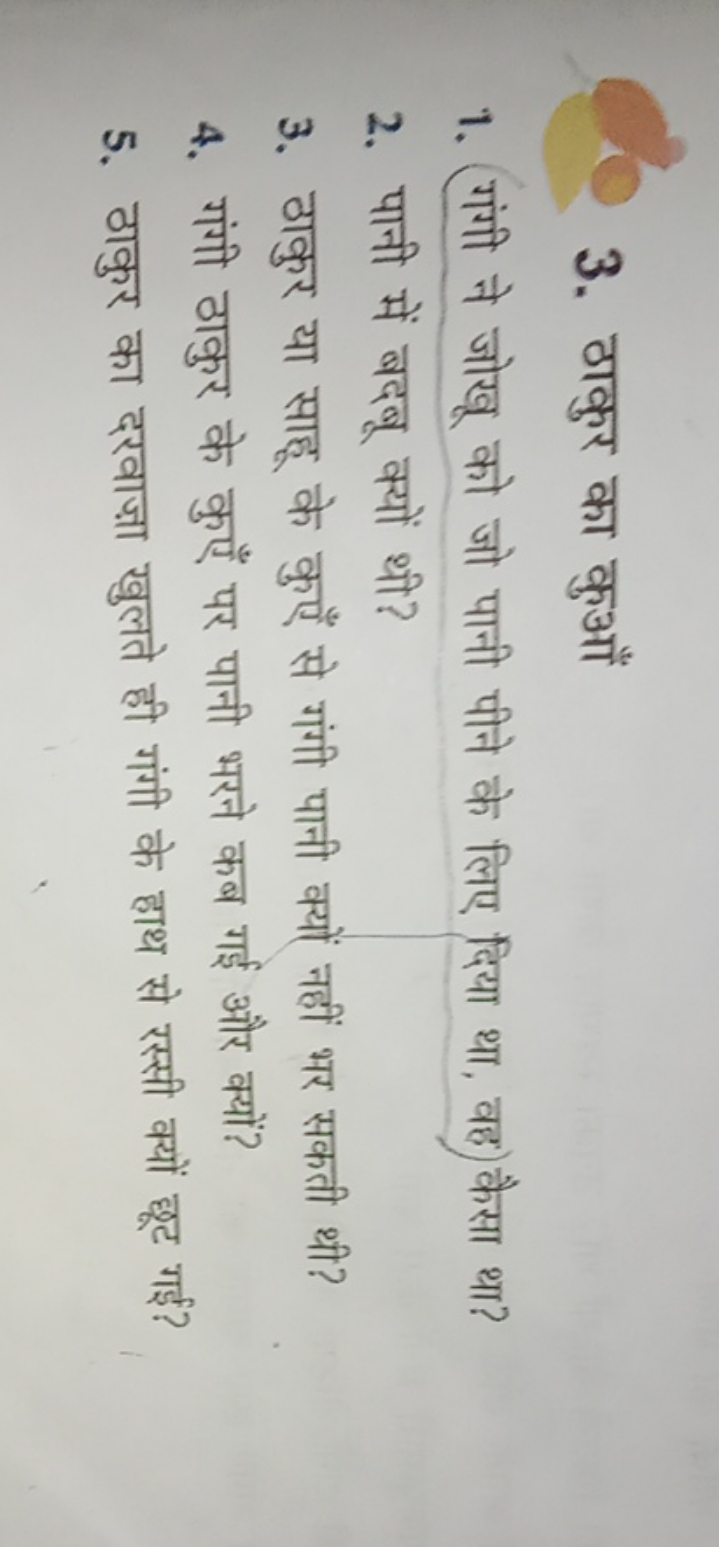 3. ठाकुर का कुआँ
1. गंगी ने जोखू को जो पानी पीने के लिए दिया था, वह कैसा था?
2. पानी में बदबू क्यों थी?
3. ठाकुर या साहू के कुएँ से गंगी पानी क्यों नहीं भर सकती थी?
4. गंगी ठाकुर के कुएँ पर पानी भरने कब गई और क्यों?
5. ठाकुर का दरवाज़ा खुलते ही गंगी के हाथ से रस्सी क्यों छूट गई?